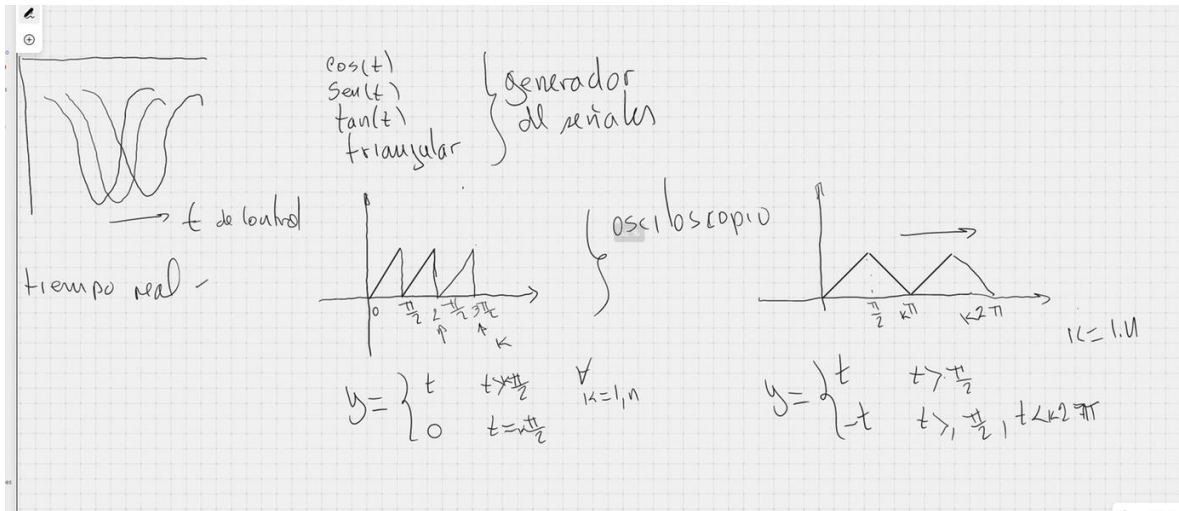 cos(t)
sen(t)
tan(t)
triangular
generador
de señales
t de control
tiempo real
osciloscopio
0 π/2 2π/2 3π/2
K
y = { t t>kπ/2
0 t=kπ/2
∀
k=1,n
π/2 kπ k2π
k=1.n
y = { t t>π/2
-t t>, π/2, t<k2π